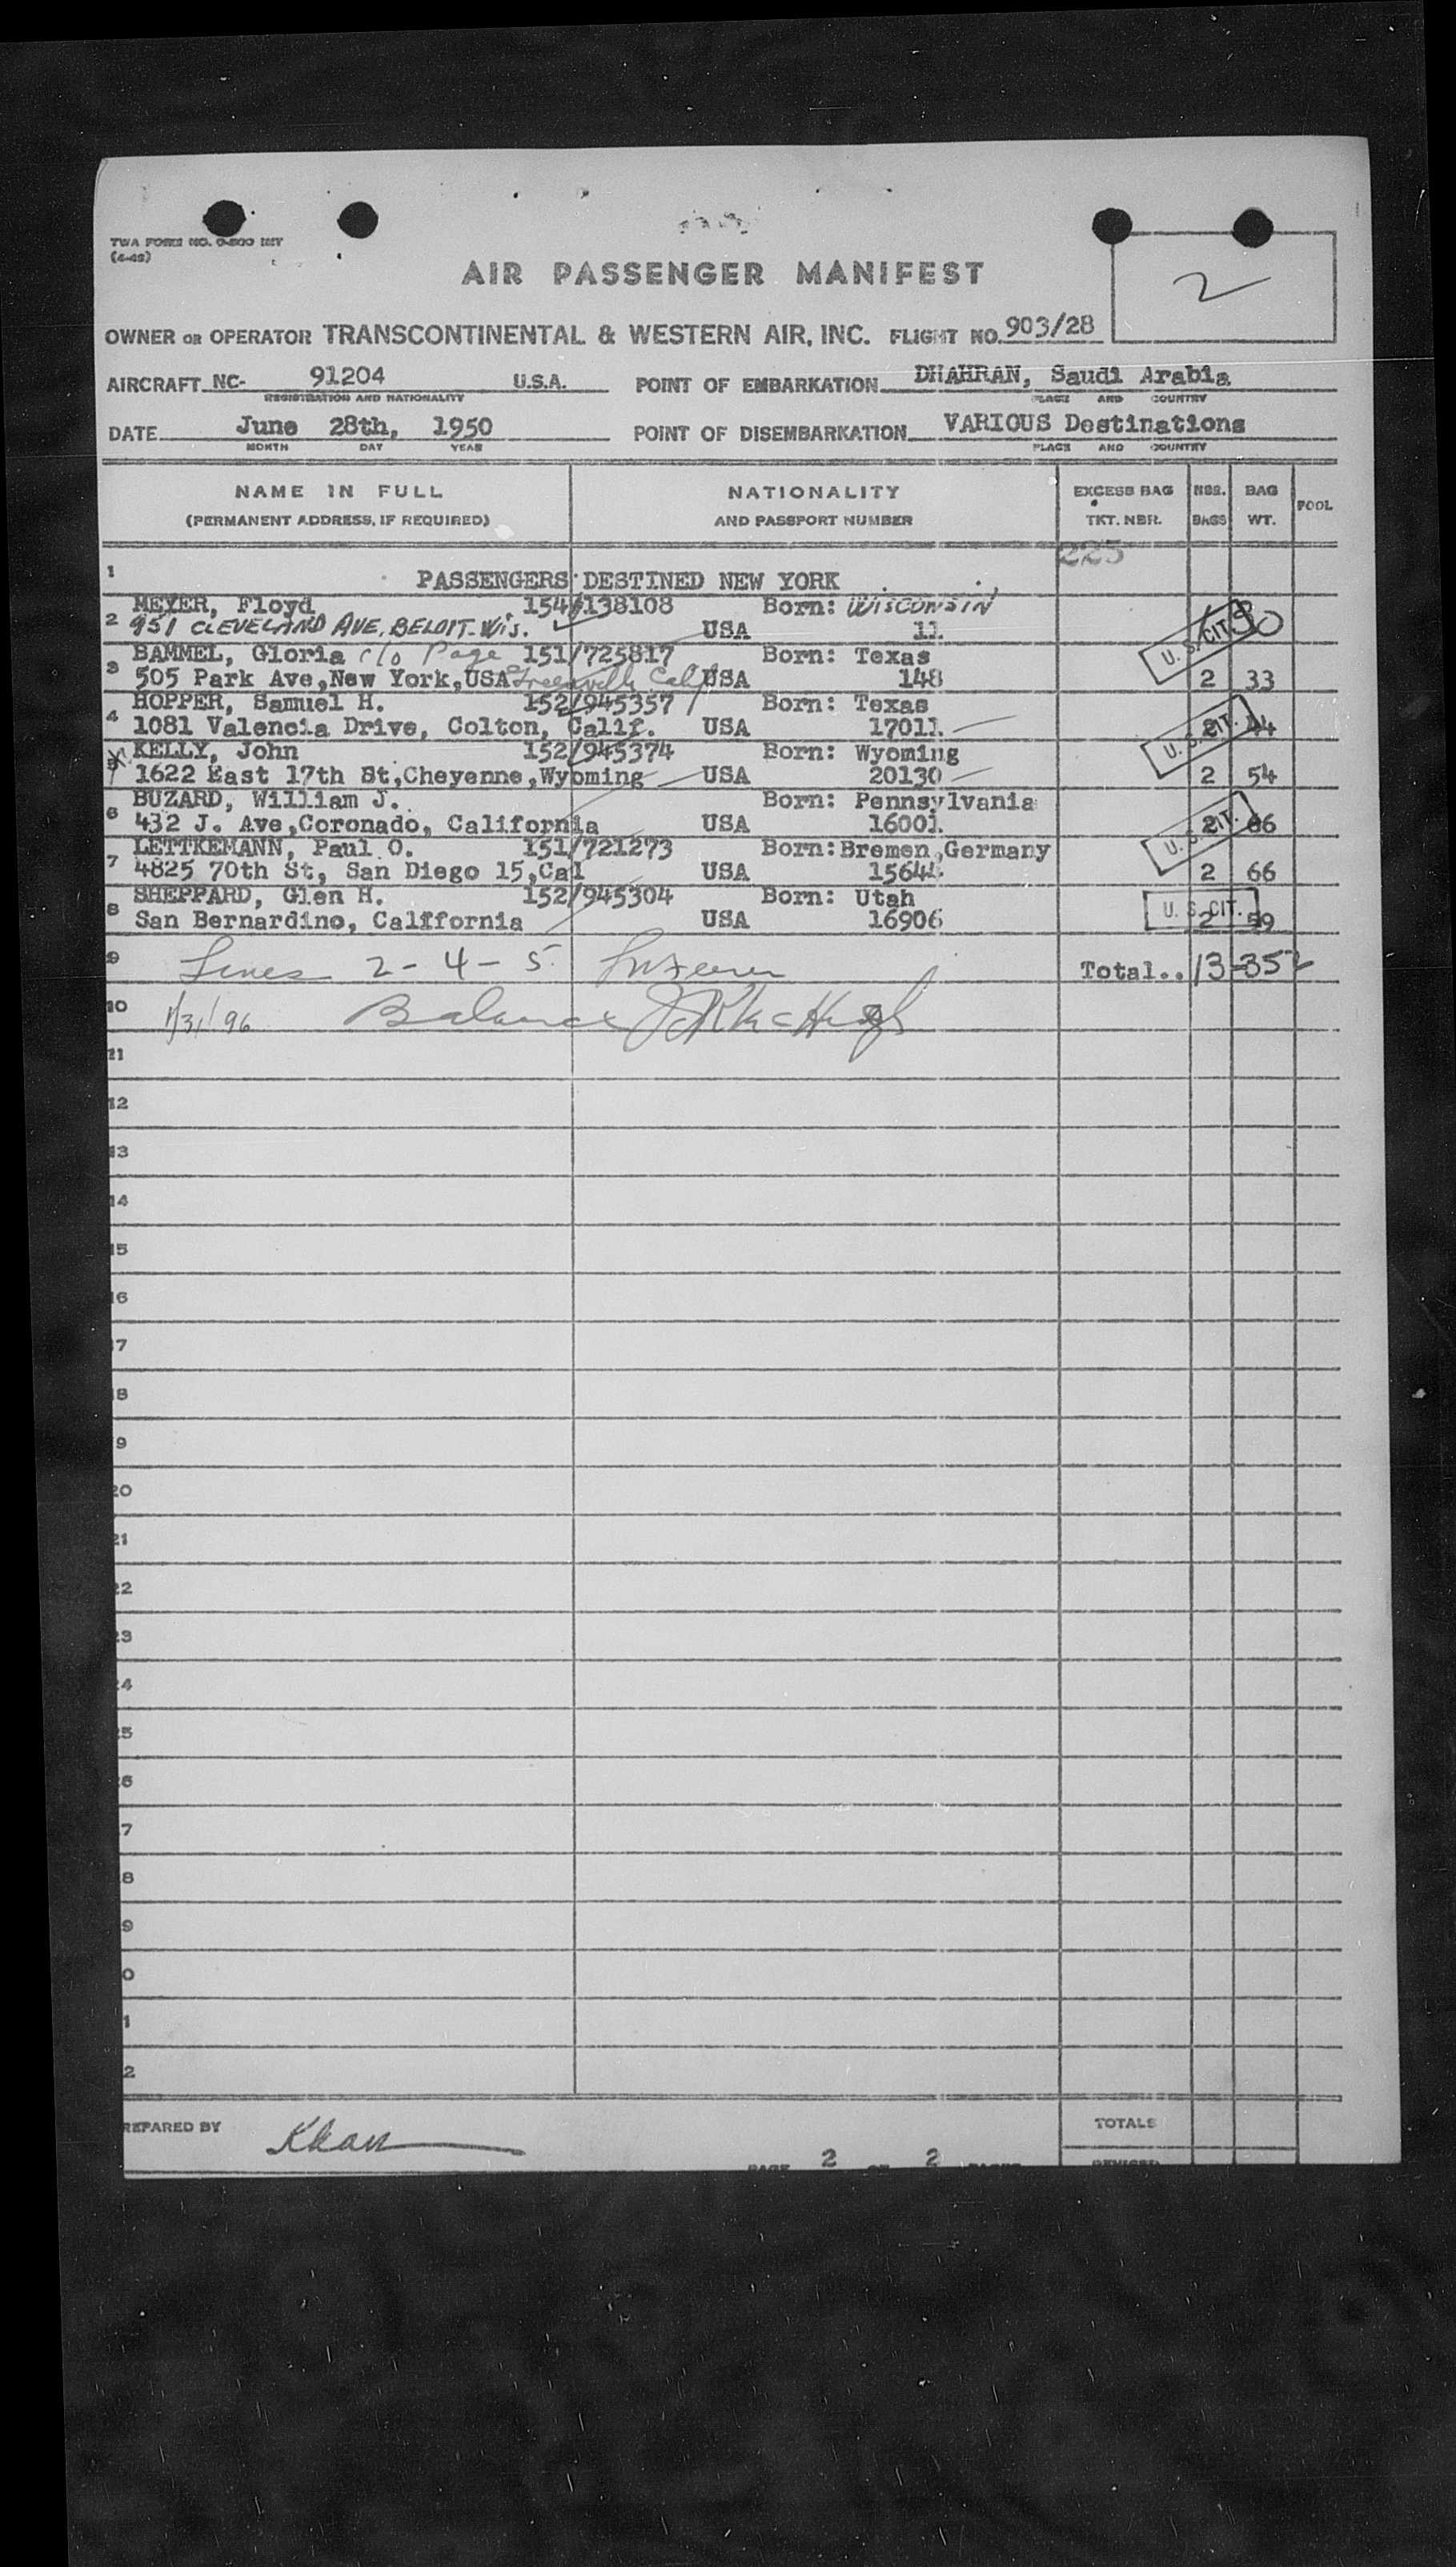 TWA FORM NO. 0-800 INT
(4-48)
AIR PASSENGER MANIFEST
2
OWNER OR OPERATOR TRANSCONTINENTAL & WESTERN AIR, INC. FLIGHT NO. 903/28
AIRCRAFT NC- 91204 U.S.A. POINT OF EMBARKATION DHAHRAN, Saudi Arabia
REGISTRATION AND NATIONALITY PLACE AND COUNTRY
DATE June 28th, 1950 POINT OF DISEMBARKATION VARIOUS Destinations
MONTH DAY YEAR PLACE AND COUNTRY
NAME IN FULL NATIONALITY EXCESS BAG NBR. BAG POOL
(PERMANENT ADDRESS, IF REQUIRED) AND PASSPORT NUMBER TKT. NBR. BAGS WT.
225
1 PASSENGERS DESTINED NEW YORK
MEYER, Floyd 154/138108 Born: WISCONSIN
2 951 CLEVELAND AVE, BELOIT-Wis. USA 11 U.S. CIT. 30
BAMMEL, Gloria c/o Page 151/725817 Born: Texas
3 505 Park Ave,New York,USA Greenville Calif USA 148 2 33
HOPPER, Samuel H. 152/945357 Born: Texas
4 1081 Valencia Drive, Colton, Calif. USA 17011 U.S. CIT. 2 44
KELLY, John 152/945374 Born: Wyoming
5 1622 East 17th St,Cheyenne,Wyoming USA 20130 2 54
BUZARD, William J. Born: Pennsylvania
6 432 J. Ave,Coronado, California USA 16001 U.S. CIT. 2 66
LETTKEMANN, Paul O. 151/721273 Born:Bremen,Germany
7 4825 70th St, San Diego 15,Cal USA 15644 2 66
SHEPPARD, Glen H. 152/945304 Born: Utah
8 San Bernardino, California USA 16906 U. S. CIT. 2 59
9 Lines 2-4-5 Total.. 13 352
10 1/31/96 Balance
11
12
13
14
15
16
17
18
19
20
21
22
23
24
25
26
7
8
9
0
1
2
REPARED BY Khan TOTALS
PAGE 2 OF 2 PAGES